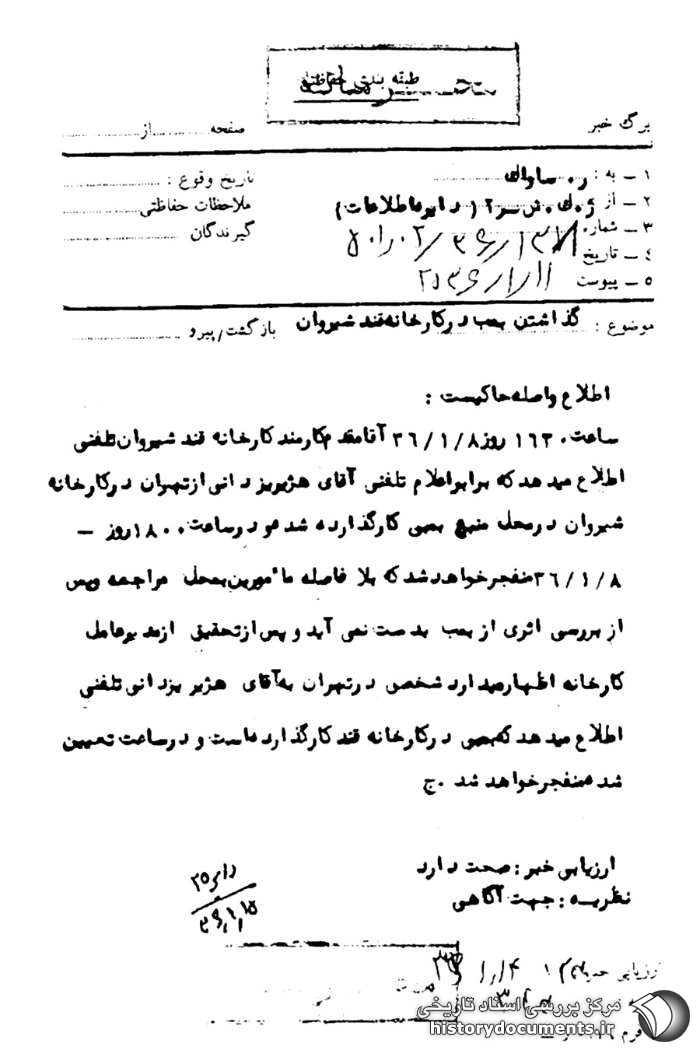 طبقه بندی حفاظتی
برگ خبر
صفحه ............ از ............
۱ ـ به : ر. ساواك
تاریخ وقوع :
۲ ـ از
ملاحظات حفاظتی
۳ ـ شماره
گیرندگان
۴ ـ تاریخ
۵ ـ پیوست
موضوع : گذاشتن بمب در کارخانه قند شیروان بازگشت/پیرو
اطلاع واصله حاکیست :
ساعت ۱۶۳۰ روز ۳۶/۱/۸ آقا مقدم کارمند کارخانه قند شیروان تلفنی
اطلاع میدهد که برابر اعلام تلفنی آقای هژبر یزدانی از تهران در کارخانه
شیروان در محل منبع بمبی کار گذارده شده و در ساعت ۱۸۰۰ روز ـ
۳۶/۱/۸ منفجر خواهد شد که بلا فاصله مأمورین بمحل مراجعه و پس
از بررسی اثری از بمب بدست نمی آید و پس از تحقیق از مدیر عامل
کارخانه اظهار میدارد شخصی در تهران به آقای هژبر یزدانی تلفنی
اطلاع میدهد که بمبی در کارخانه قند کار گذارده است و در ساعت تعیین
شده منفجر خواهد شد .ج
ارزیابی خبر : صحت دارد
نظریه : جهت آگاهی
مرکز بررسی اسناد تاریخی
historydocuments.ir